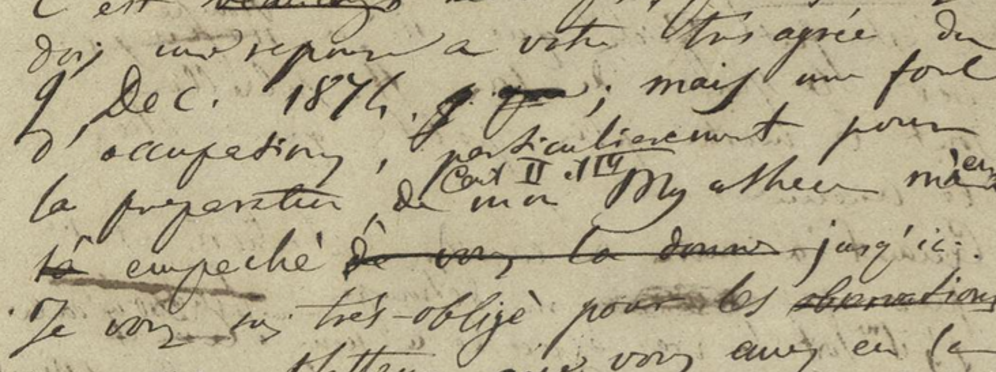 C'est
dois une reponse a votre très agrée du
9 Dec. 1874. ; mais une foule
d'occupations, particulierement pour
la preparation de mon Cent II et IV m'a en
empeché de vous la donner jusq'ici.
Je vous suis très-obligé pour les observations
que vous avez eu la